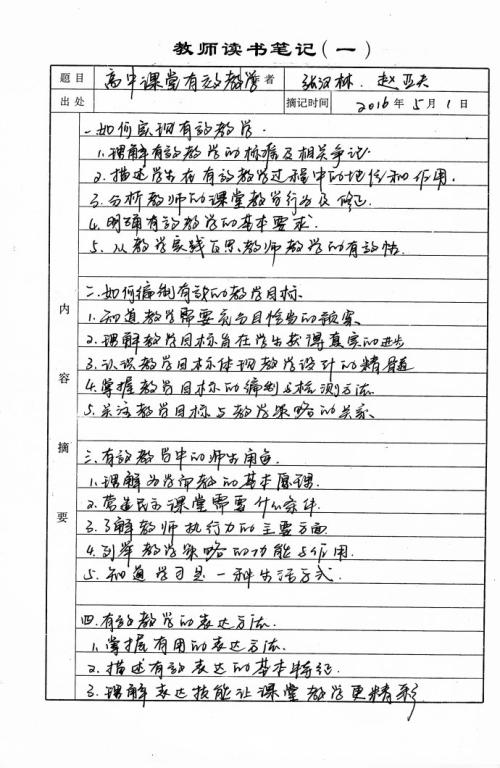 教师读书笔记(一)
题目 高中课堂有效教学 者 张汉林 赵亚夫
出处 摘记时间 2016年5月1日
内容摘要
一.如何实现有效教学.
1.理解有效教学的标准及相关争论.
2.描述学生在有效教学过程中的地位和作用.
3.分析教师的课堂教学行为及修正.
4.明确有效教学的基本要求.
5.从教学实践反思教师教学的有效性.
二.如何编制有效的教学目标.
1.知道教学需要充分且恰当的预案.
2.理解教学目标旨在学生获得真实的进步
3.认识教学目标体现教学设计的精髓
4.掌握教学目标的编制与检测方法.
5.关注教学目标与教学策略的关系.
三.有效教学中的师生角色.
1.理解为学而教的基本原理.
2.营造民主课堂需要什么条件.
3.了解教师执行力的主要方面.
4.列举教学策略的功能与作用.
5.知道学习是一种生活方式.
四.有效教学的表达方法.
1.掌握有用的表达方法.
2.描述有效表达的基本特征.
3.理解表达技能让课堂教学更精彩.